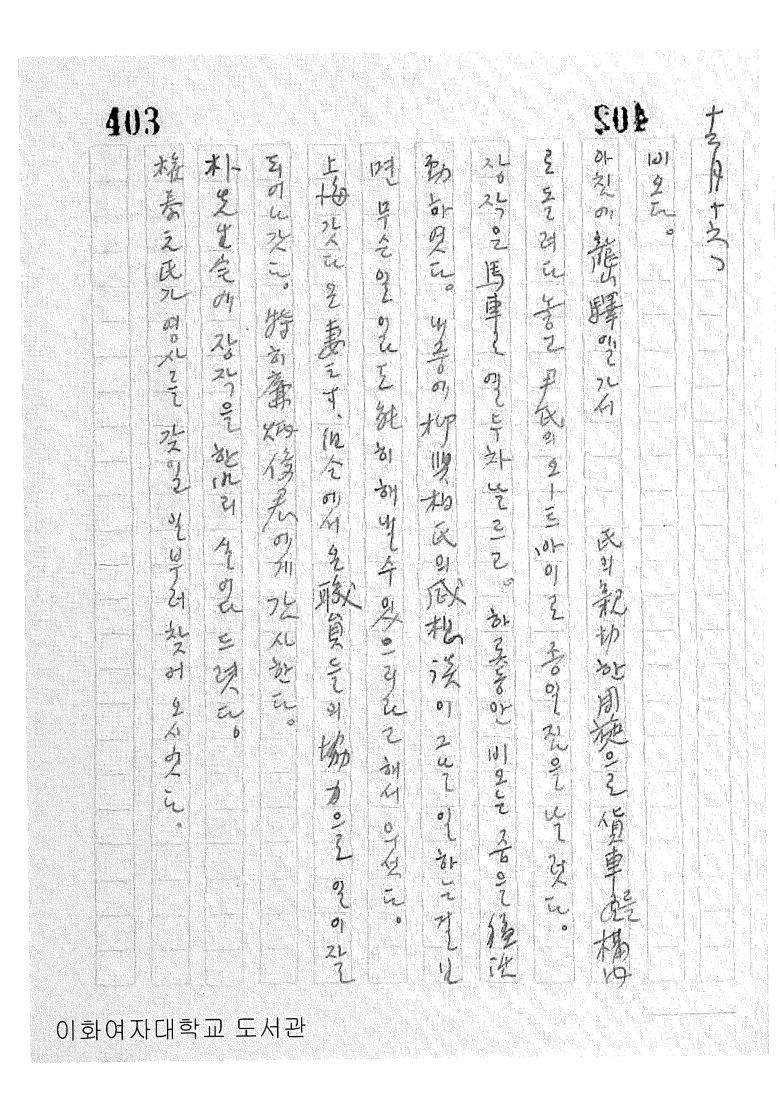 402
403
十二月十六日
비오다。
아침에 龍山驛엘 가서 氏의 親切한 周旋으로 貨車를 構內
로 돌려다 놓고 尹氏의 오ー트바이로 종일 짐을 날럿다。
장작은 馬車로 열두차 날르고。 하로동안 비오는 중을
動하엿다。 내종에 柳興相氏의 感想談이 그날 일하는걸 보
면 무슨일 일나도 能히 해낼 수 있으리라고 해서 우섯다。
上海 갓다 온 妻도 이번 會에서 온 職員들의 協力으로 일이 잘
되어나갓다。 特히 俊君에게 감사한다。
朴先生宅에 장작을 한마리 실어다 드렷다。
桂春元氏가 영사를 갖일 일부러 찾어 오시엇다。
이화여자대학교 도서관